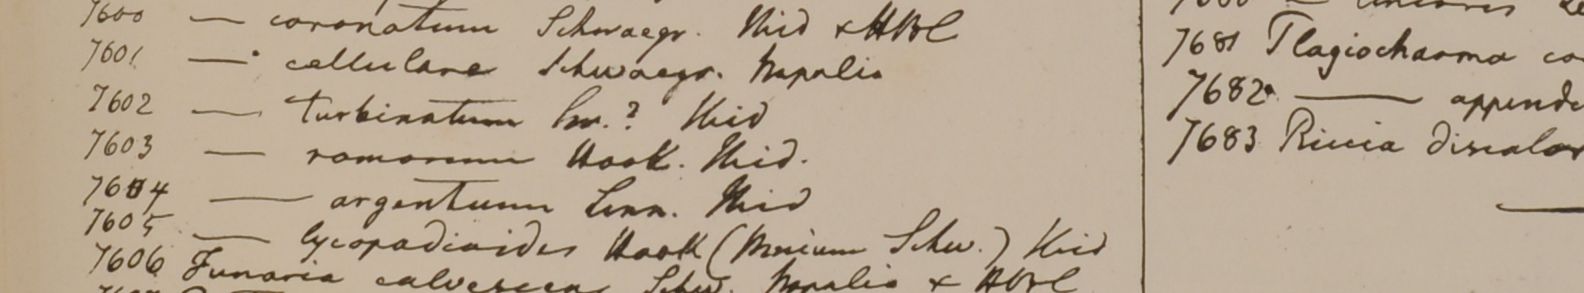 7600 — coronatum Schwaegr. Ibid & HBC
7601 — cellulare Schwaegr. Napalia
7602 — turbinatum Sw.? Ibid
7603 — ramosum Hook. Ibid.
7604 — argentum Linn. Ibid
7605 — lycopodioides Hook (Mnium Schw.) Ibid
7606 Funaria calvescens Schw. Napalia & HBC
linearis
7681 Plagiochasma co
7682 — append
7683 Riccia discolor